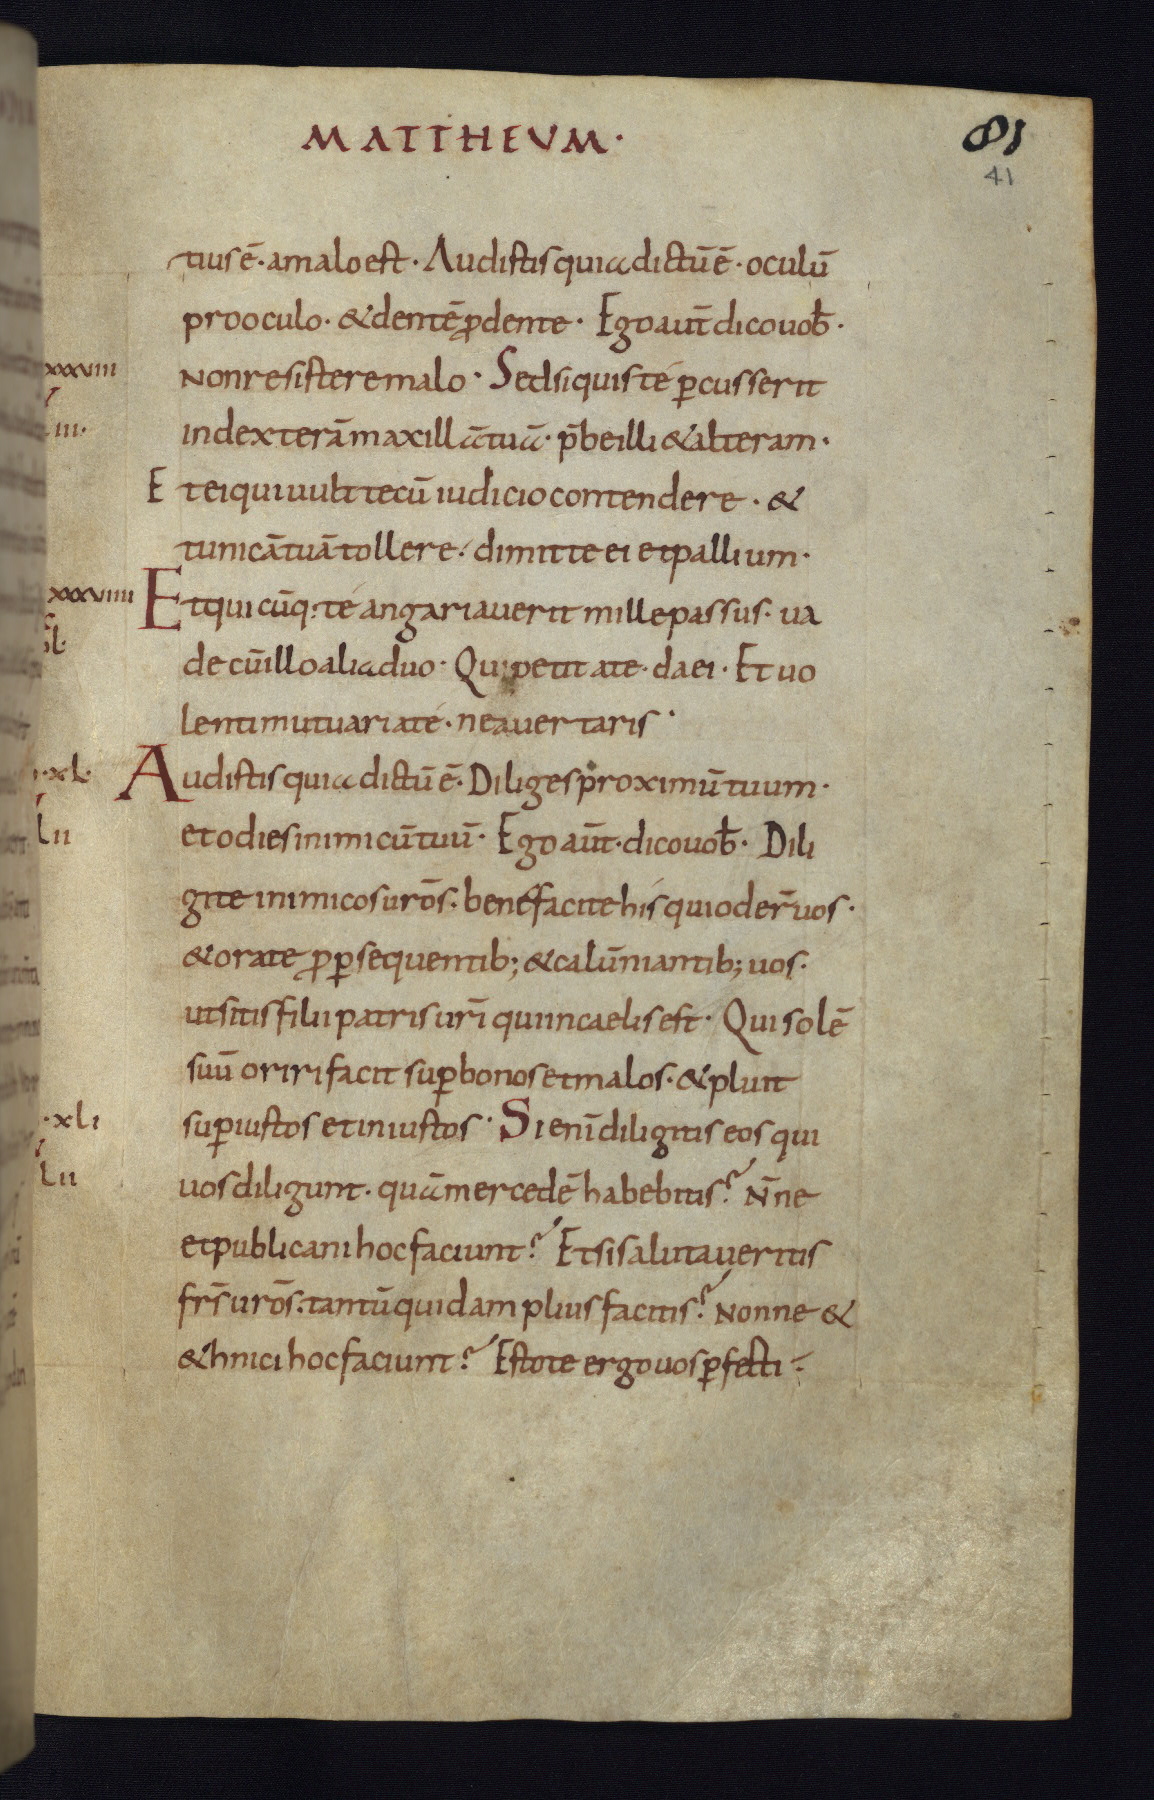 MATTHEVM·
81
41
tius ē· a malo est· Audistis quia dictū ē· oculū
pro oculo· & dentē ꝓ dente· Ego aut̄ dico uob̄·
xxxviii
Non resistere malo· Sed si quis té ꝑcusserit
iii·
in dexterā maxillā tuā· p̄be illi & alteram·
Et ei qui uult tecū iudicio contendere· &
tunicā tuā tollere· dimitte ei et pallium·
xxxviiii
Et quicūq: té angariauerit mille passus· ua
de cū illo alia duo· Qui petit a te· da ei· Et uo
lenti mutuari a té· ne auertaris·
·xl·
Audistis quia dictū ē· Diliges proximū tuum·
lii
et odies inimicū tuū· Ego aūt· dico uob̄· Dili
gite inimicos ur̄os· benefacite his qui oder̄ uos·
& orate ꝓ ꝑsequentib; & calūniantib; uos·
ut sitis filii patris ur̄i qui in caelis est· Qui solē
suū oriri facit suꝑ bonos et malos· & pluit
·xli
suꝑ iustos et iniustos· Si enī diligitis eos qui
lii
uos diligunt· quā mercedē habebitis? Nn̄e
et publicani hoc faciunt? Et si salutaueritis
fr̄s ur̄os· tantū quidam plius facitis? Nonne &
&hnici hoc faciunt? Estote ergo uos ꝑfecti·